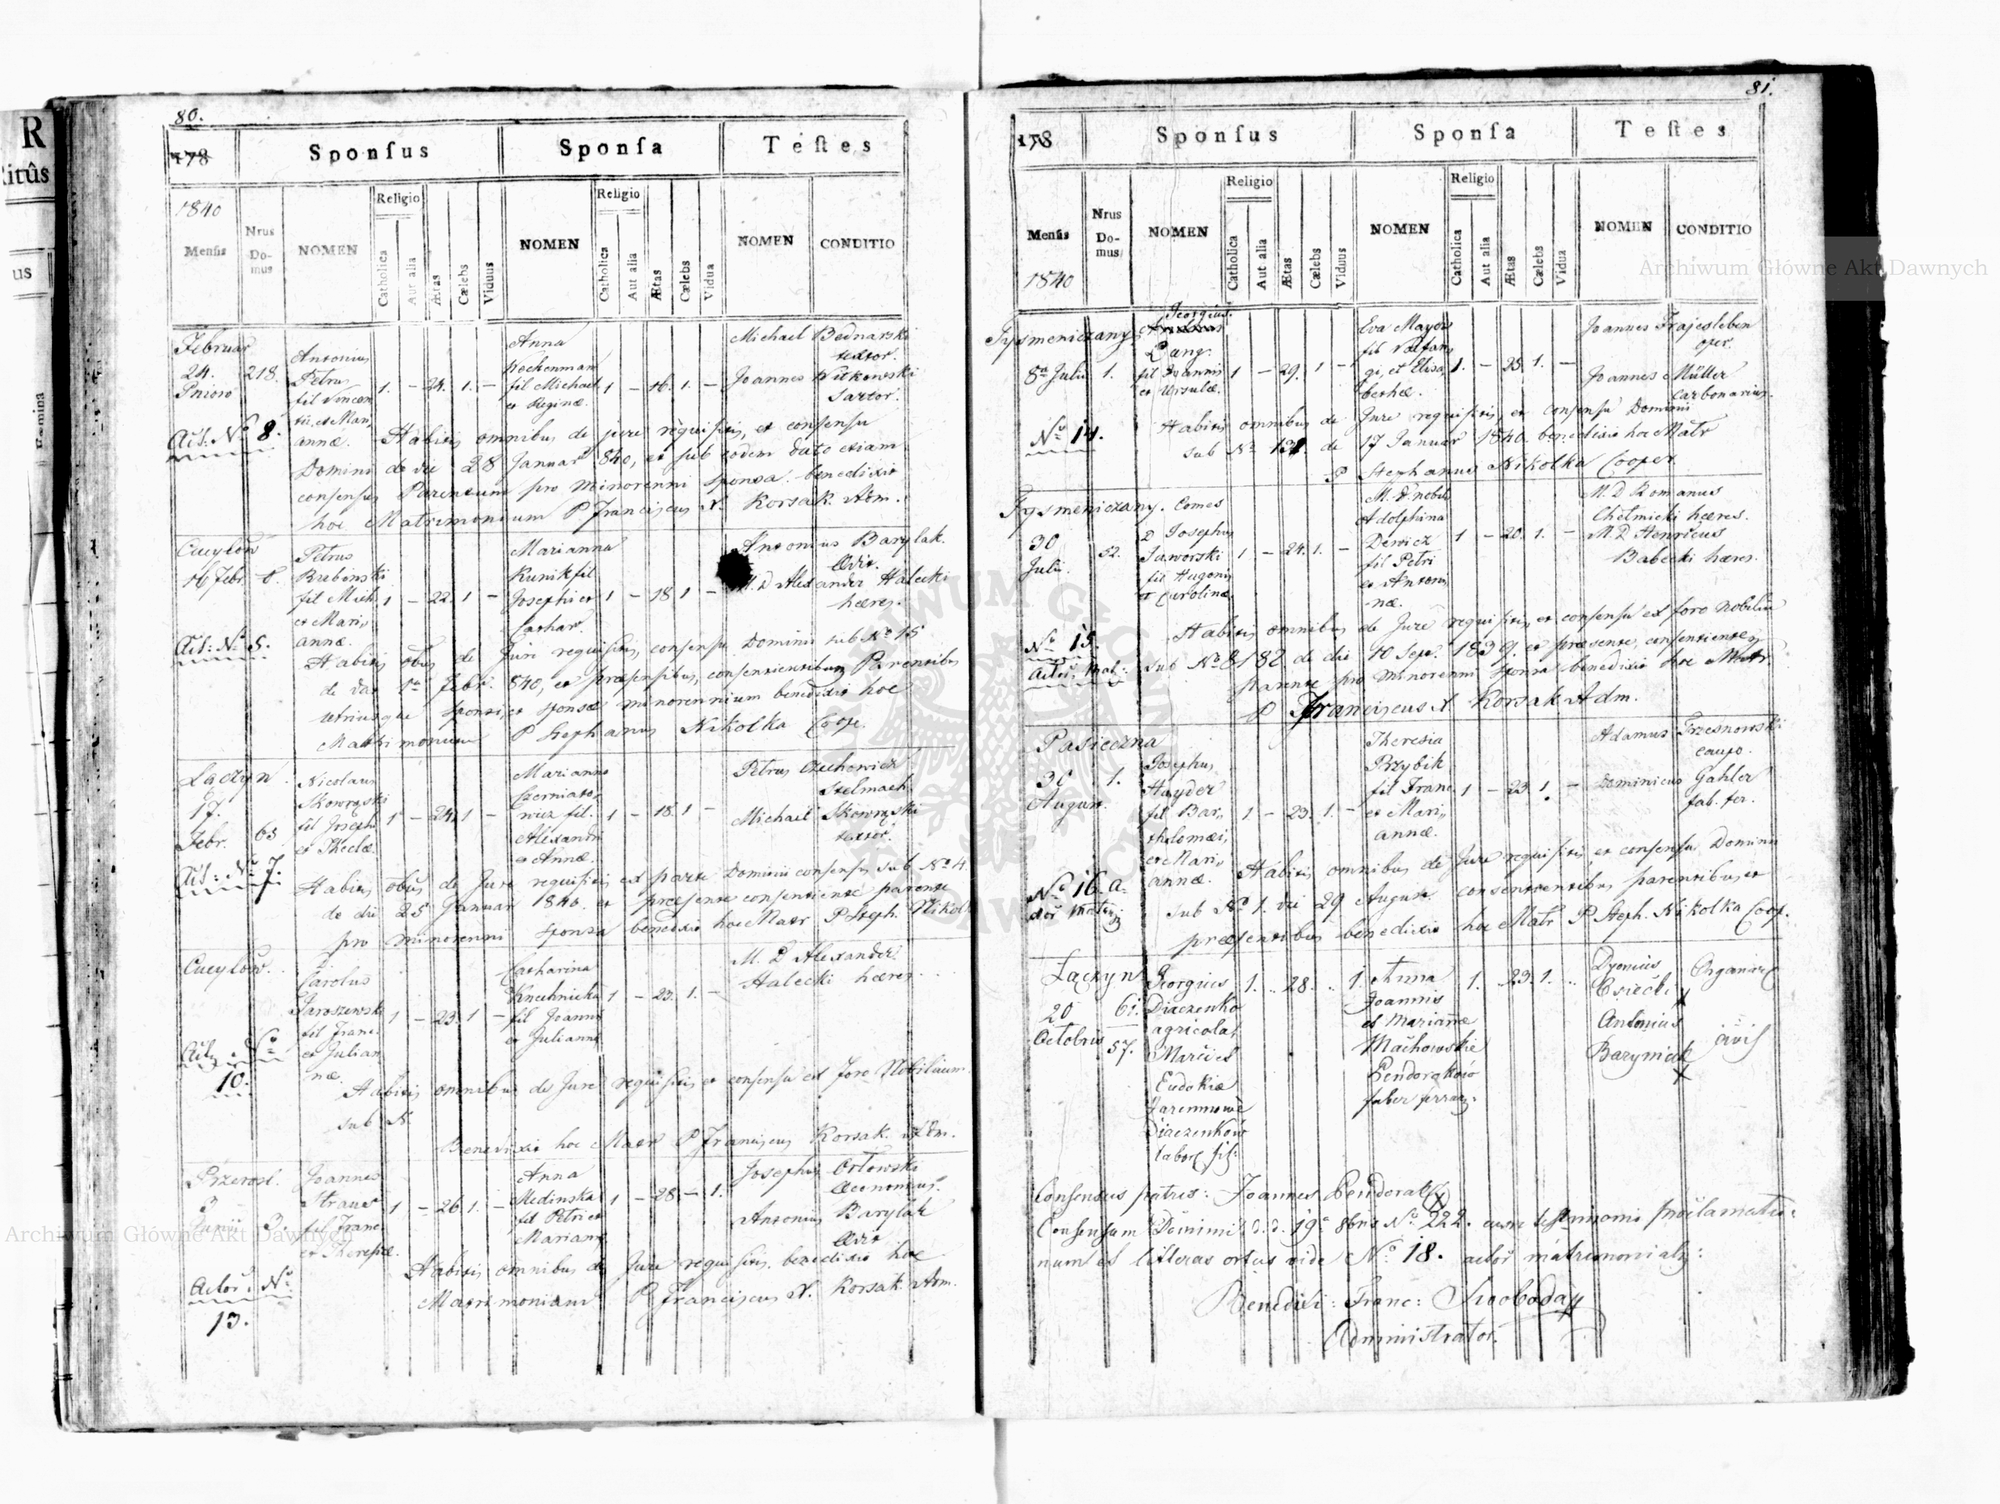 80.
178
Sponſus
Sponſa
Teſtes
1840
Menſis
Nrus Do-mus
NOMEN
Religio
Catholica
Aut alia
Ætas
Cælebs
Viduus
NOMEN
Religio
Catholica
Aut alia
Ætas
Cælebs
Vidua
NOMEN
CONDITIO
Februar
24.
218.
Antonius
Petrus
fil Vincen
tii, et Mari
annæ.
1. – 24. 1. –
Anna
fil Michael
et Reginæ.
1 – 16. 1. –
Michael Bednarski
textor.
Joannes Witkowski
Sartor.
Act: No 8.
Habitis omnibus de jure requisitis, et consensu
Domini de die 28 Januar 840, et sub eodem dato etiam
consensus Parentum pro minorenni sponsa benedixit
hoc Matrimonium P Franciscus X. Korsak Adm.
Cucylow
16 Febr. 8.
Petrus
fil Mich
et Mari,
annæ
1 – 22. 1 –
Marianna
Kunik fil
Josephi et
Cathar.
1 – 18 1 –
Antonius Barylak
M. D Alexander Halecki
hæres.
Act: No 5.
Habitis obus de Juri requisitis, consensu Dominii sub No 15
de dato 1ma Febr. 840, et præsentibus, consentientibus Parentibus
utriusque sponsi, et sponsæ minorennium benedixit hoc
Matrimonium P Stephanus Nikolka Coope.
Łączyn
17.
Febr. 63
Nicolaus
Skowroński
fil Joseph
et Theclæ
1 – 24. 1 –
Marianna
Czerniato
wicz fil.
Alexandri
et Annæ.
1 – 18. 1 –
Petrus Czechowicz
Stelmach
Michael Skowroński
textor.
Act: No 7.
Habitis obus de Jure requisitis ex parte Dominii consensu sub No 4
de die 25 Januar 1840. et præsente consentiente parente
pro minorenni sponsa benedixit hoc Matr P Steph. Nikol
Cucylów.
Carolus
Jaroszewski
fil Franc.
et Julian
næ.
1 – 23. 1 –
Catharina
Kuchnicka
fil Joanni
et Julianna
1 – 23. 1. –
M. D Alexander
Halecki hæres
10.
Habitis omnibus de Jure requisitis et consensu ex foro Nobilium
sub N.
Benedixit hoc Matr P Franciscus Korsak Adm.
Przerosl.
3
Junii 3.
Joannes
fil Franc.
et Theresiæ.
1 – 26. 1. –
Anna
Medinska
fil Petri et
Mariann
1 – 28 – 1.
Josephus Orłowski
Œconomus.
Antonius Barylak
Actor: No
13.
Habitis omnibus de Jure requisitis benedixit hoc
Matrimonium P Franciscus X. Korsak Adm.
81.
178
Sponſus
Sponſa
Teſtes
Menſis
1840
Nrus Do-mus
NOMEN
Religio
Catholica
Aut alia
Ætas
Cælebs
Viduus
NOMEN
Religio
Catholica
Aut alia
Ætas
Cælebs
Vidua
NOMEN
CONDITIO
Tysmeniczany
8a Julii 1.
Georgius
Lang.
fil Joannis
et Ursulæ.
1 – 29. 1 –
Eva Mayer
fil Wolfan
gi, et Elisa,
bethæ.
1. – 23. 1. –
Joannes Frajesleben
oper.
Joannes Müller
Carbonarius.
No 14.
Habitis omnibus de Jure requisitis et consensu Dominii
sub No 131. de 17 Januar 1840. benedixit hoc Matr
P Stephanus Nikolka Cooper
Tysmeniczany.
30
Julii.
52.
Comes
D Josephus
Jaworski
fil Hugonis
et Carolinæ
1 – 24. 1. –
M. D. nobilis
Adolphina
Dewicz
fil Petri
et Antoni
næ.
1 – 20. 1. –
M. D Romanus
Chełmicki hæres.
M. D Henricus
Babecki hæres.
No 15.
Actor. Mat:
Habitis omnibus de Jure requisitis, et consensu ex foro nobilium
sub No 8182 de die 10 Sept. 1839. et præsente, consentiente
parente pro minorenni sponsa benedixit hoc Matr.
P Franciscus X. Korsak Adm.
Pasieczna
30
August.
1.
Josephus
Hayder
fil Bar,
tholomæi,
et Mari,
annæ.
1 – 23. 1. –
Theresia
Przybik
fil Franc
et Mari,
annæ.
1 – 23 1. –
Adamus Trzesnowski
caupo.
Dominicus Gahler
fab. fer.
No 16. a-
Habitis omnibus de Jure requisitis, et consensu Dominii
sub No 1. die 29 August. consentientibus parentibus et
præsentibus benedixit hoc Matr P Steph. Nikolka Coop.
Łączyn
20
Octobris
61.
57.
Georgius
Diaczenko
agricola,
Eudokiæ
Diaczenków
labor. fil:
1. „ 28. „ 1.
Anna
Joannis
et Mariannæ
Machowskie
Pendorakow
faber ferrar:
1. „ 23. 1. „
Dyonius
Antonius
Organar
civis
x
x
Consensus patris: Joannes Pendorak (x)
Consensum Dominii d. d. 19a 8bris No 222. cum testimonio proclamatio-
num et litteras ortus vide No 18. actor matrimonialg:
Benedixi: Franc: Swoboday
Administrator.
Archiwum Główne Akt Dawnych
Archiwum Główne Akt Dawnych